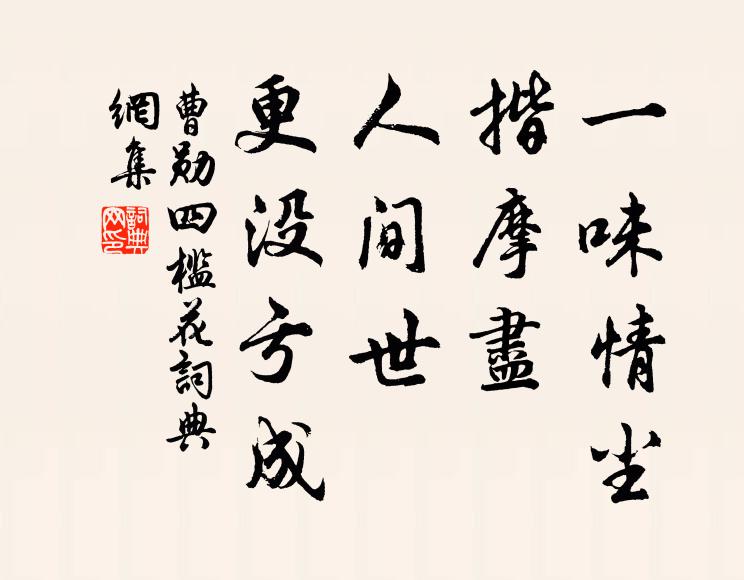 一味情尘
揩摩盡
人间世
更没亏成
曹勋四槛花詞典
網集
詞典
网印